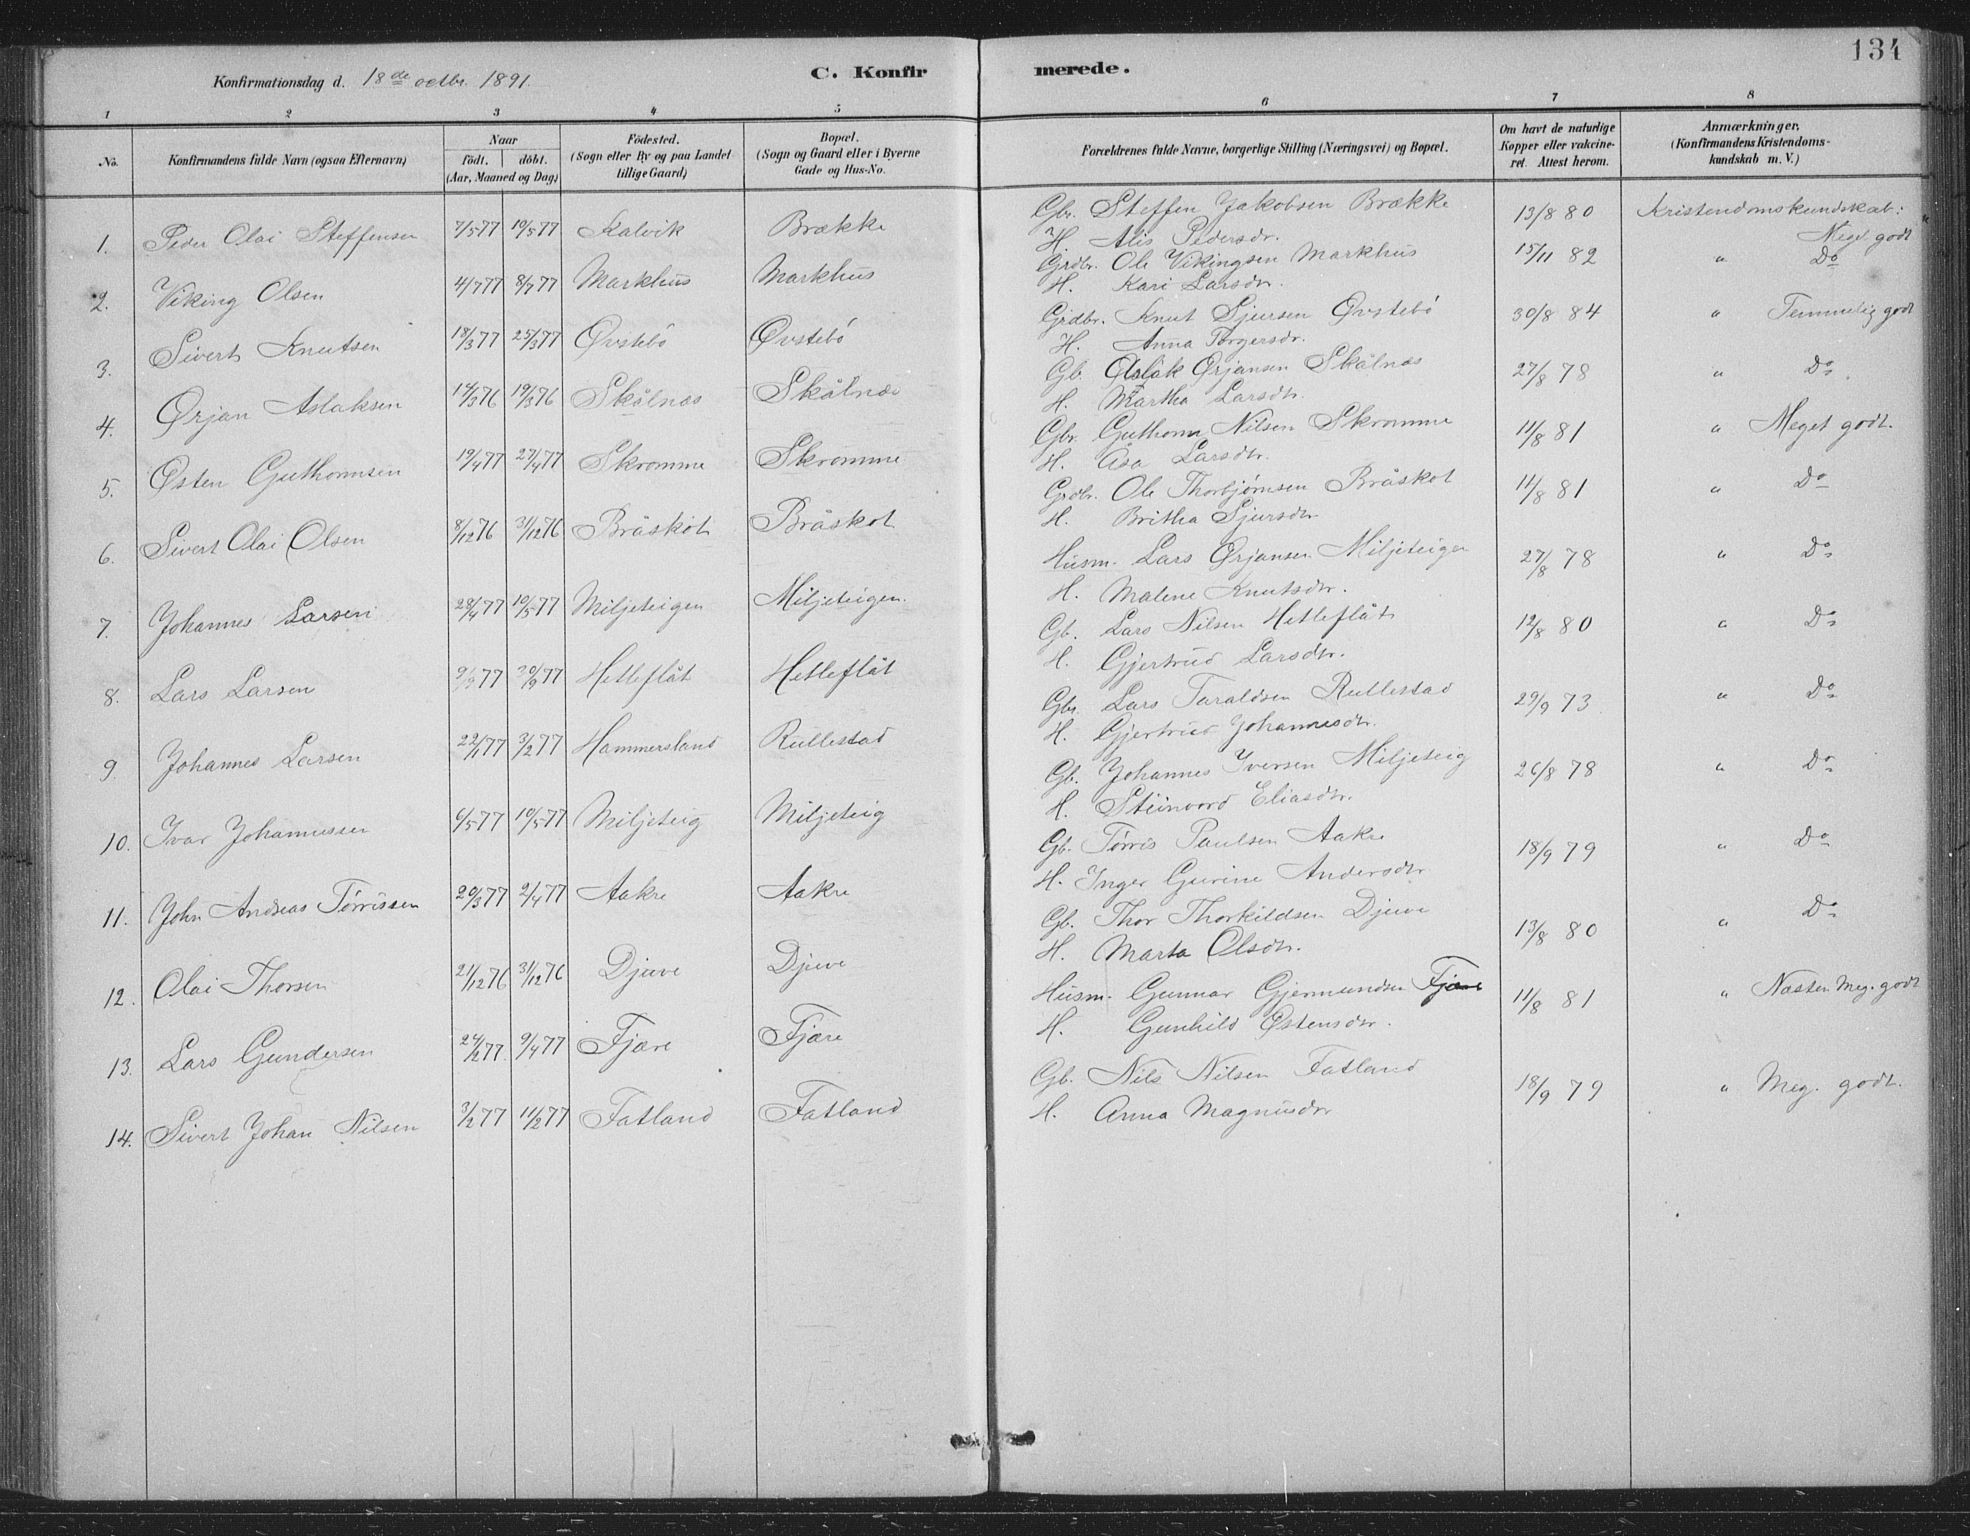 134
Konfirmationsdag d. 18de octbr. 1891.
C. Konfirmerede.
1 2 3 4 5 6 7 8
No.
Konfirmandens fulde Navn (ogsaa Efternavn)
Naar
födt. döbt.
(Aar, Maaned og Dag)
Födested.
(Sogn eller By og paa Landet
tillige Gaard)
Bopæl.
(Sogn og Gaard eller i Byerne
Gade og Hus-No.
Forældrenes fulde Navne, borgerlige Stilling (Næringsvei) og Bopæl.
Om havt de naturlige
Kopper eller vakcine-
ret. Attest herom.
Anmærkninger.
(Konfirmandens Kristendoms-
kundskab m. V.)
1. Peder Olai Steffensen 7/5 77 19/5 77 Kalvik Brække Gbr. Steffen Jakobsen Brække 13/8 80 Kristendomskundskab:
H. Alis Pedersdr. Meget godt
2. Viking Olsen 4/7 77 8/7 77 Markhus Markhus Grdbr. Ole Vikingsen Markhus 15/11 82 " Do
H. Kari Larsdr.
3. Sivert Knutsen 18/3 77 25/3 77 Øvstebö Øvstebö Grdbr. Knut Sjursen Øvstebö 30/8 84 " Temmelig godt
H. Anna Torgersdr.
4. Ørjan Aslaksen 14/3 76 19/3 76 Skålnæs Skålnæs Gb. Aslak Ørjansen Skålnæs 27/8 78 " Do
H. Martha Larsdtr.
5. Østen Guthormsen 19/4 77 27/4 77 Skromme Skromme Gbr. Guthorm Nilsen Skromme 11/8 81 " Meget godt.
H. Åsa Larsdtr.
6. Sivert Olai Olsen 8/12 76 31/12 76 Bråskot Bråskot Grdbr. Ole Thorbjörnsen Bråskot 11/8 81 " Do
H. Britha Sjursdtr
7. Johannes Larsen 28/4 77 10/5 77 Miljeteigen Miljeteigen. Husm. Lars Ørjansen Miljeteigen 27/8 78 " Do
H. Malene Knutsdtr.
8. Lars Larsen 77 30/9 77 Hetleflåt Hetleflåt Gb. Lars Nilsen Hetleflåt 12/8 80 " Do
H. Gjertrud Larsdtr.
9. Johannes Larsen 22/1 77 3/2 77 Hammersland Rullestad Gbr. Lars Taraldsen Rullestad 29/9 73. " Do
H. Gjertrud Johannesdtr.
10. Ivar Johannessen 6/5 77 10/5 77 Miljeteig Miljeteig Gb. Johannes Iversen Miljeteig 26/8 78 " Do
H. Steinvord Eliasdtr.
11. John Andreas Tørrissen 20/3 77 2/4 77 Aakre Aakre Gb. Tørris Paulsen Aakre 18/9 79 " Do
H. Inger Gurine Andersdtr
12. Olai Thorsen 21/12 76 31/12 76 Djuve Djuve Gb. Thor Thorkildsen Djuve 13/8 80 " Do
H. Marta Olsdtr.
13. Lars Gundersen 24/2 77. 9/4 77 Fjære Fjære Husm. Gunnar Gjermundsen Fjære 11/8 81 " Næsten Meg. godt
H. Gunhild Østensdtr.
14. Sivert Johan Nilsen 3/2 77 11/2 77 Fatland Fatland Gb. Nils Nilsen Fatland 18/9 79 " Meg. godt.
H. Anna Magnusdtr